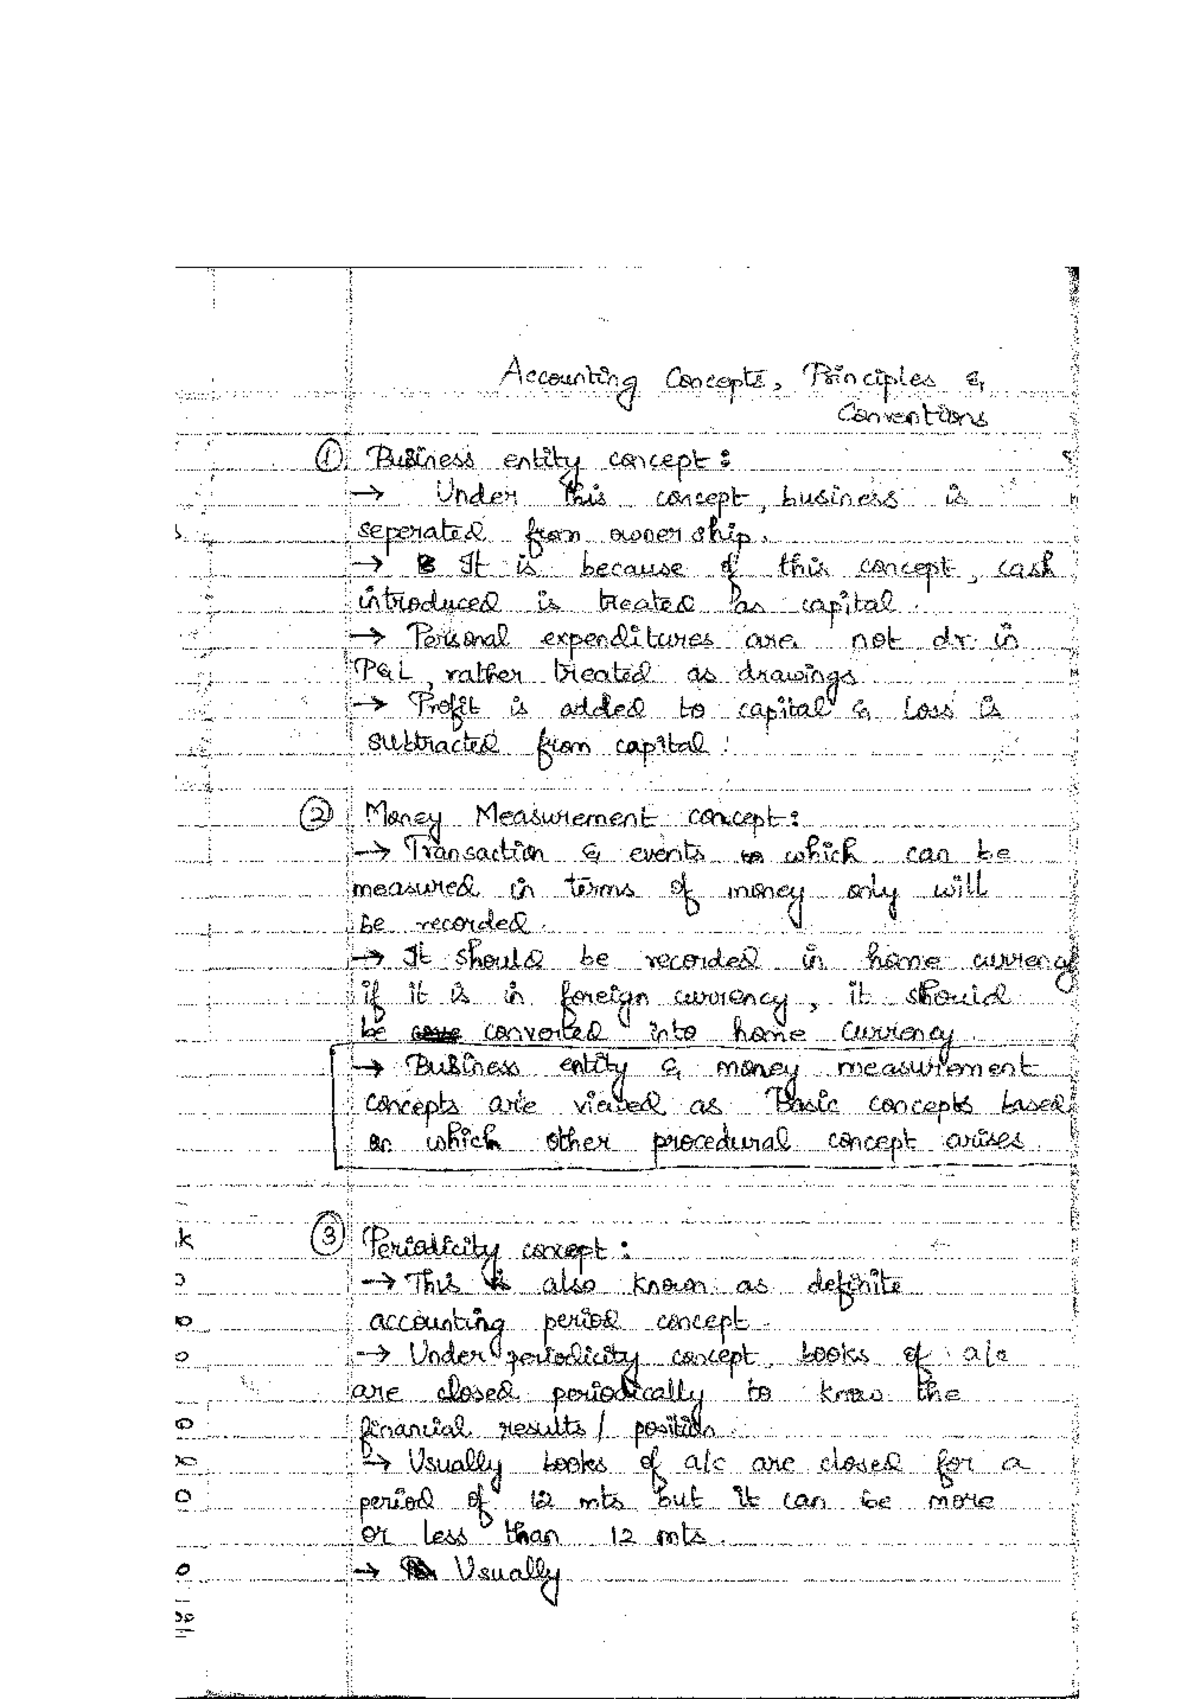 Accounting Concepts, Principles &
Conventions
① Business entity concept:
→ Under this concept, business is
seperated from ownership.
→ It is because of this concept, cash
introduced is treated as capital.
→ Personal expenditures are not dr. in
P&L, rather treated as drawings
→ Profit is added to capital & Loss is
subtracted from capital.
② Money Measurement concept:
→ Transaction & events which can be
measured in terms of money only will
be recorded.
→ It should be recorded in home currency
if it is in foreign currency, it should
be converted into home currency.
→ Business entity & money measurement
concepts are viewed as Basic concepts based
on which other procedural concept arises
③ Periodicity concept:
→ This is also known as definite
accounting period concept.
→ Under periodicity concept, books of a/c
are closed periodically to know the
financial results / position.
→ Usually books of a/c are closed for a
period of 12 mts but it can be more
or less than 12 mts.
→ Usually